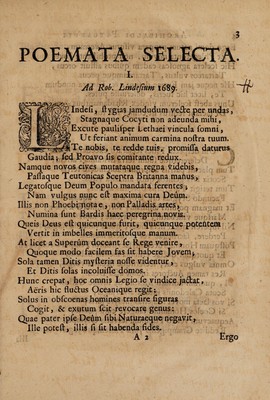 3
POEMATA SELECTA.
I.
Ad Rob. Lindesium 1689.
LIndesi, stygias jamdudum vecte per undas,
Stagnaque Cocyti non adeunda mihi,
Excute paulisper Lethaei vincula somni,
Ut feriant animum carmina nostra tuum.
Te nobis, te redde tuis, promissa daturus
Gaudia; sed Proavo sis comitante redux.
Namque novos cives mutataque regna videbis,
Passaque Teutonicas Sceptra Britanna manus,
Legatosque Deum Populo mandata ferentes;
Nam vulgus nunc est maxima cura Deûm.
Illis non Phoebei notae, non Palladis artes,
Numina sunt Bardis haec peregrina novis.
Queis Deus est quicunque furit, quicunque potentem
Vertit in imbelles immeritosque manum.
At licet a Superûm doceant se Rege venire,
Quoque modo facilem fas sit habere Jovem,
Sola tamen Ditis mysteria nosse videntur,
Et Ditis solas incoluisse domos.
Hunc crepat, hoc omnis Legio se vindice jactat,
Aëris hic fluctus Oceanique regit;
Solus in obscoenas homines transire figuras
Cogit, & exutum scit revocare genus:
Quae pater ipse Deûm sibi Naturaeque negavit,
Ille potest, illis si sit habenda fides.
A 2 Ergo